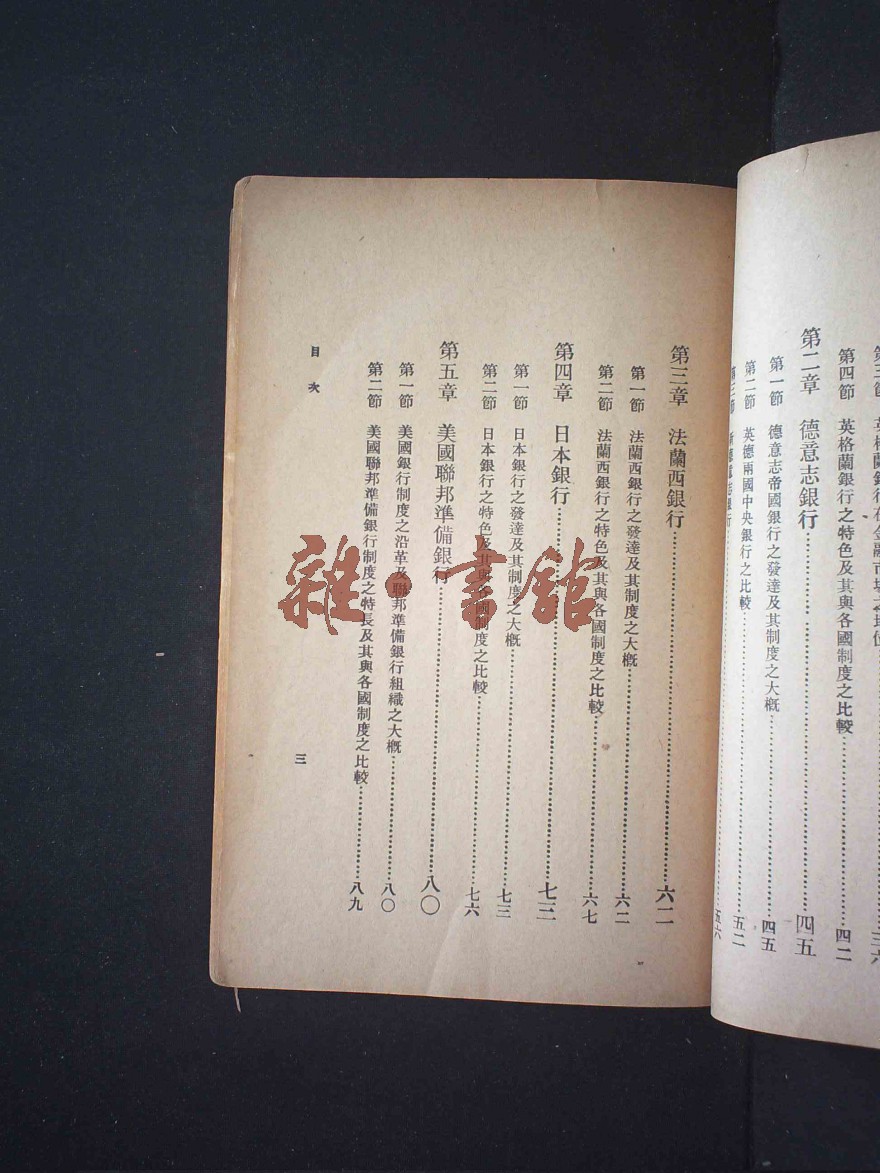 第四節 英格蘭銀行之特色及其與各國制度之比較 四二
第二章 德意志銀行 四五
第一節 德意志帝國銀行之發達及其制度之大概 四五
第二節 英德兩國中央銀行之比較 五二
五六
第三章 法蘭西銀行 六二
第一節 法蘭西銀行之發達及其制度之大概 六二
第二節 法蘭西銀行之特色及其與各國制度之比較 六七
第四章 日本銀行 七三
第一節 日本銀行之發達及其制度之大概 七三
第二節 日本銀行之特色及其與各國制度之比較 七六
第五章 美國聯邦準備銀行 八〇
第一節 美國銀行制度之沿革及聯邦準備銀行組織之大概 八〇
第二節 美國聯邦準備銀行制度之特長及其與各國制度之比較 八九
目次
三
雜·書館